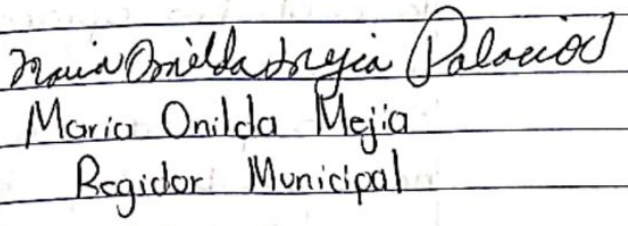 Maria Onilda Mejia Palacios
Maria Onilda Mejia
Regidor Municipal